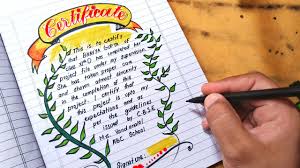 Certificate
This is to certify
that
Class XI-D has completed her
project file under my supervision.
She has taken proper care
and shown utmost sincerity
in the completion of this
project. I certify that this
project is upto my
expectations and as
per the guidelines
issued by C.B.S.E
Mrs.
ABC School
Signature: